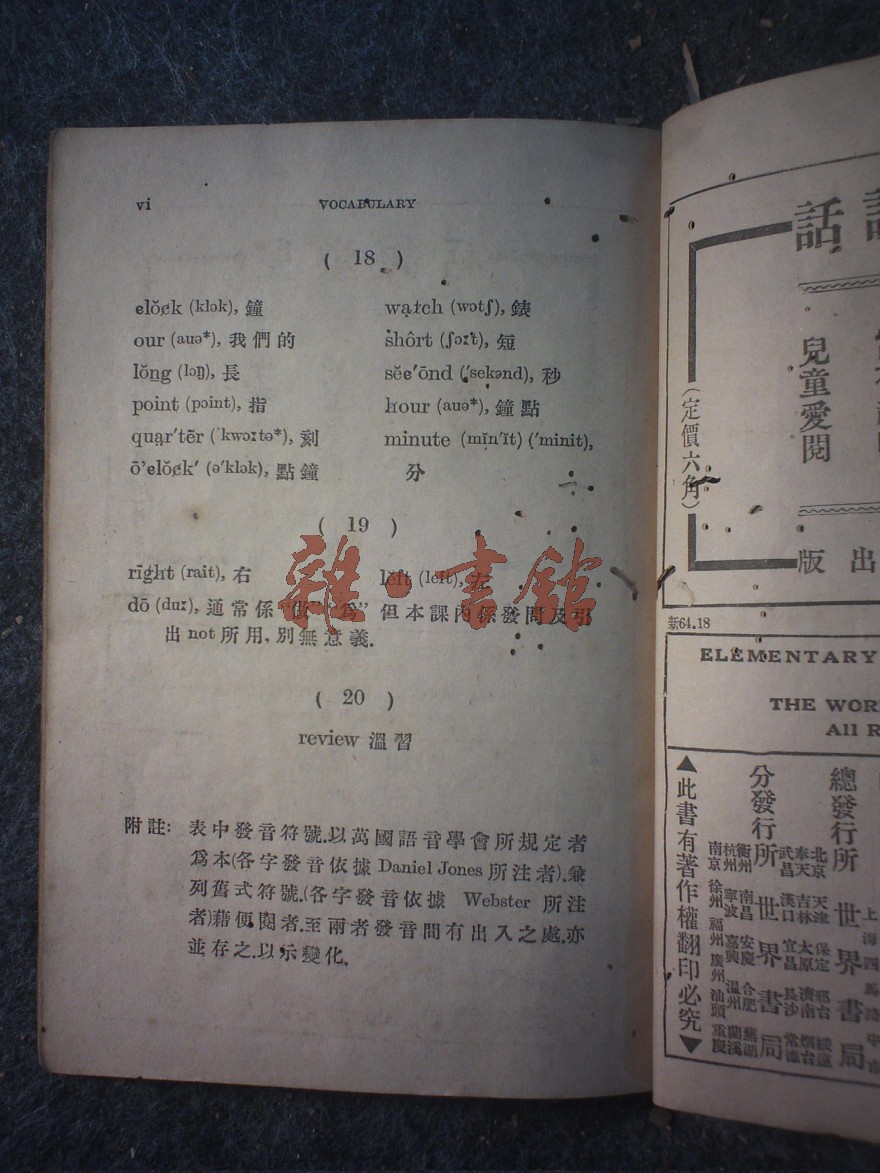 vi VOCABULARY
( 18 )
elŏck (klɔk), 鐘
our (auə*), 我們的
lŏng (lɔŋ), 長
point (pɔint), 指
quạr′tẽr (ˈkwɔːtə*), 刻
ō'elŏck′ (ə′klɔk), 點鐘
wạtch (wɔtʃ), 錶
shôrt (ʃɔːt), 短
sĕe′ōnd (ˈsekənd), 秒
hour (auə*), 鐘點
minute (mĭn′ĭt) (ˈminit),
分
( 19 )
rīght (rait), 右
lĕft (left), 左
dō (duː), 通常係“做”“爲”但本課內係發問及引
出 not 所用, 別無意義.
( 20 )
review 溫習
附註: 表中發音符號.以萬國語音學會所規定者
爲本(各字發音依據 Daniel Jones 所注者).兼
列舊式符號.(各字發音依據 Webster 所注
者)藉便閱者.至兩者發音間有出入之處.亦
並存之.以示變化.
雜·書館
話
兒童愛閱
(定價六角)
出版
新64.18
ELEMENTARY
THE WOR
All R
▲此書有著作權翻印必究▼
分發行所 世界書局
總發行所 世界書局
上海四馬路中市
北京 天津 保定 邢台 綏遠
奉天 吉林 太原 濟南 烟台
武昌 漢口 宜昌 長沙 常德
衢州 南昌 安慶 合肥 蕪湖
杭州 寧波 嘉興 溫州 蘭溪
南京 徐州 福州 廣州 汕頭 重慶